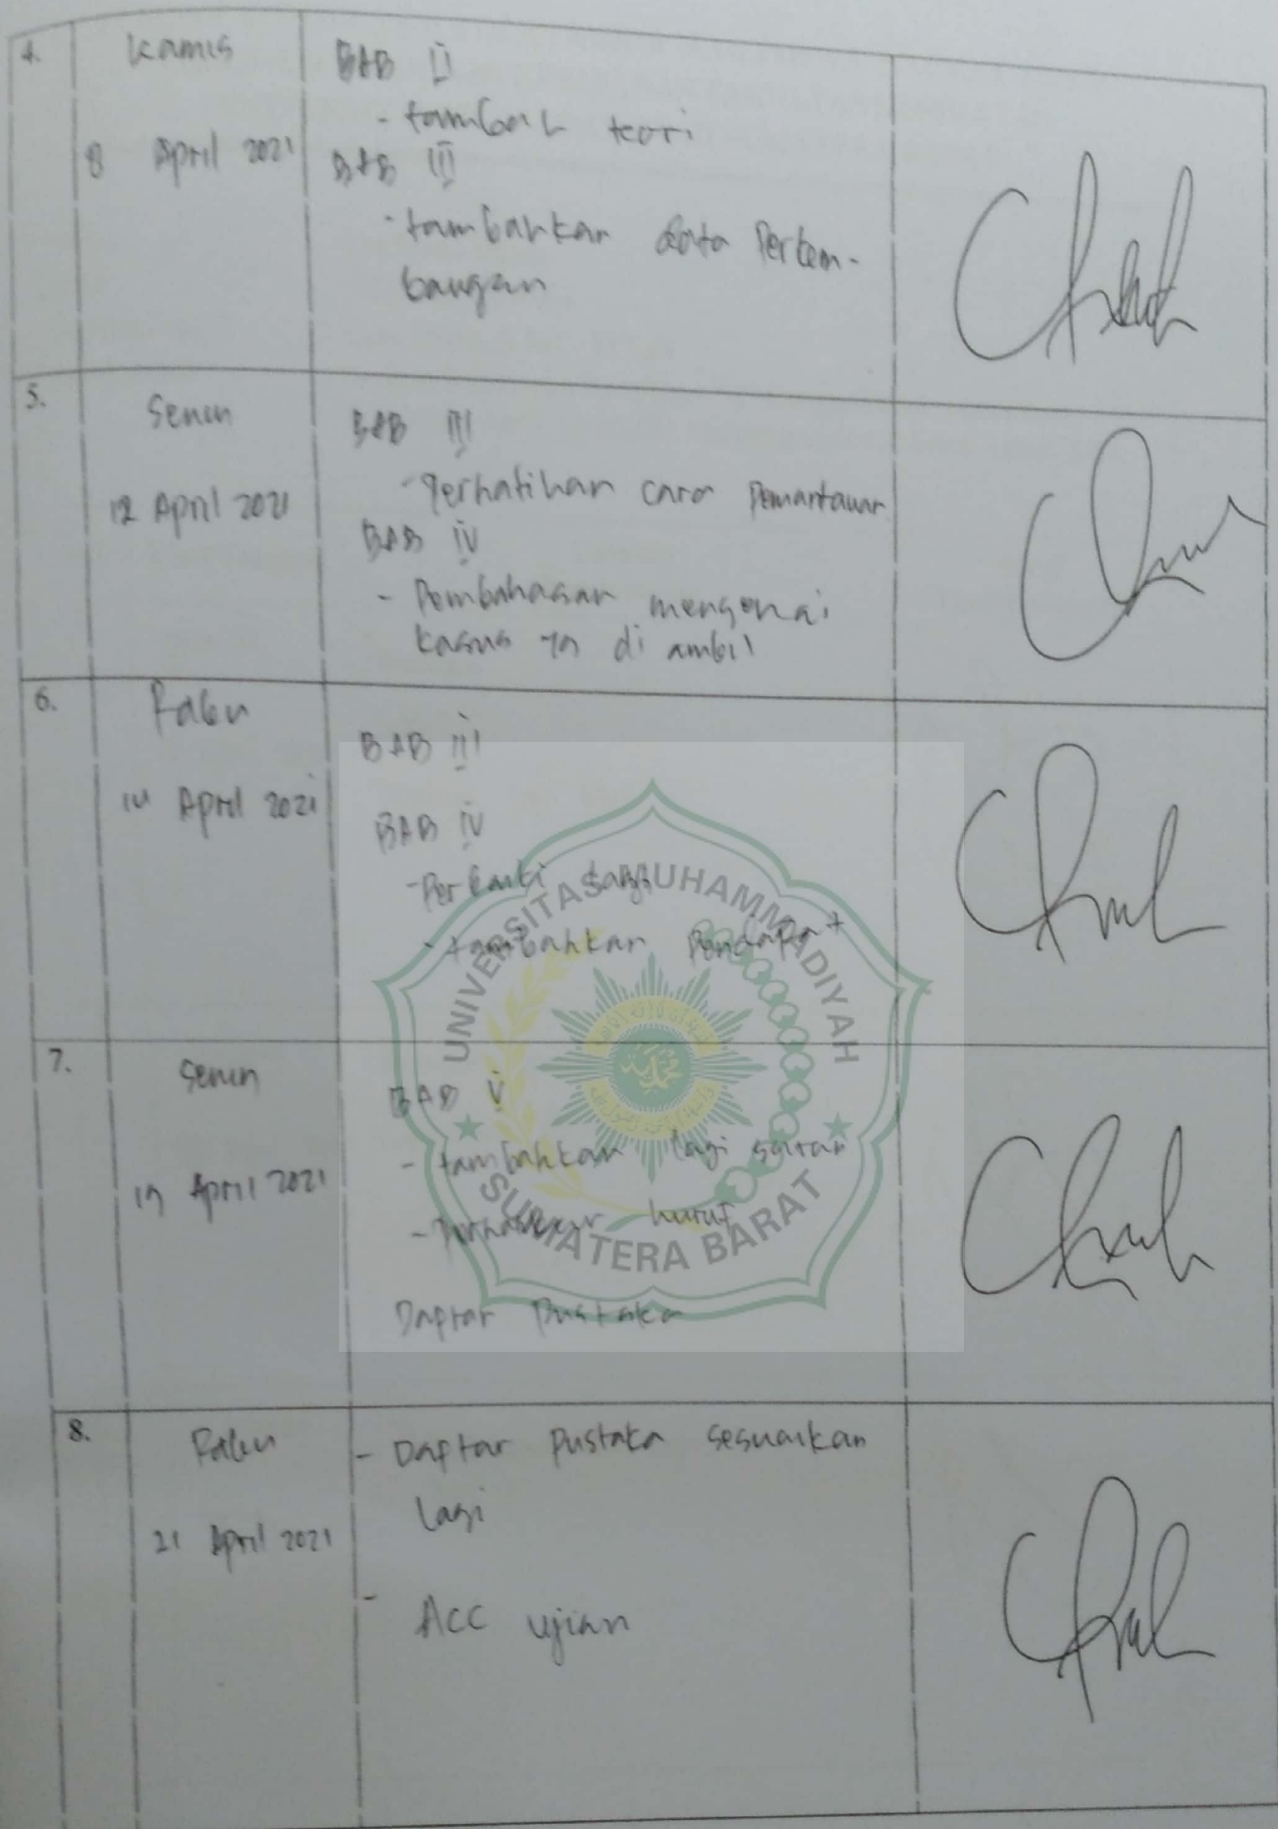 4.
Kamis
8 April 2021
BAB II
- tambah teori
BAB III
- tambahkan data Perkem-
bangan
5.
Senin
12 April 2021
BAB III
- Perhatikan cara Pemantauan
BAB IV
- Pembahasan mengenai
kasus yg di ambil
6.
Rabu
14 April 2021
BAB III
BAB IV
- Perbaiki
- tambahkan Pendapat
7.
Senin
19 April 2021
BAB V
- tambahkan lagi saran
- Perhatikan huruf
Daftar Pustaka
8.
Rabu
21 April 2021
- Daftar Pustaka sesuaikan
lagi
- ACC ujian
UNIVERSITAS MUHAMMADIYAH
SUMATERA BARAT